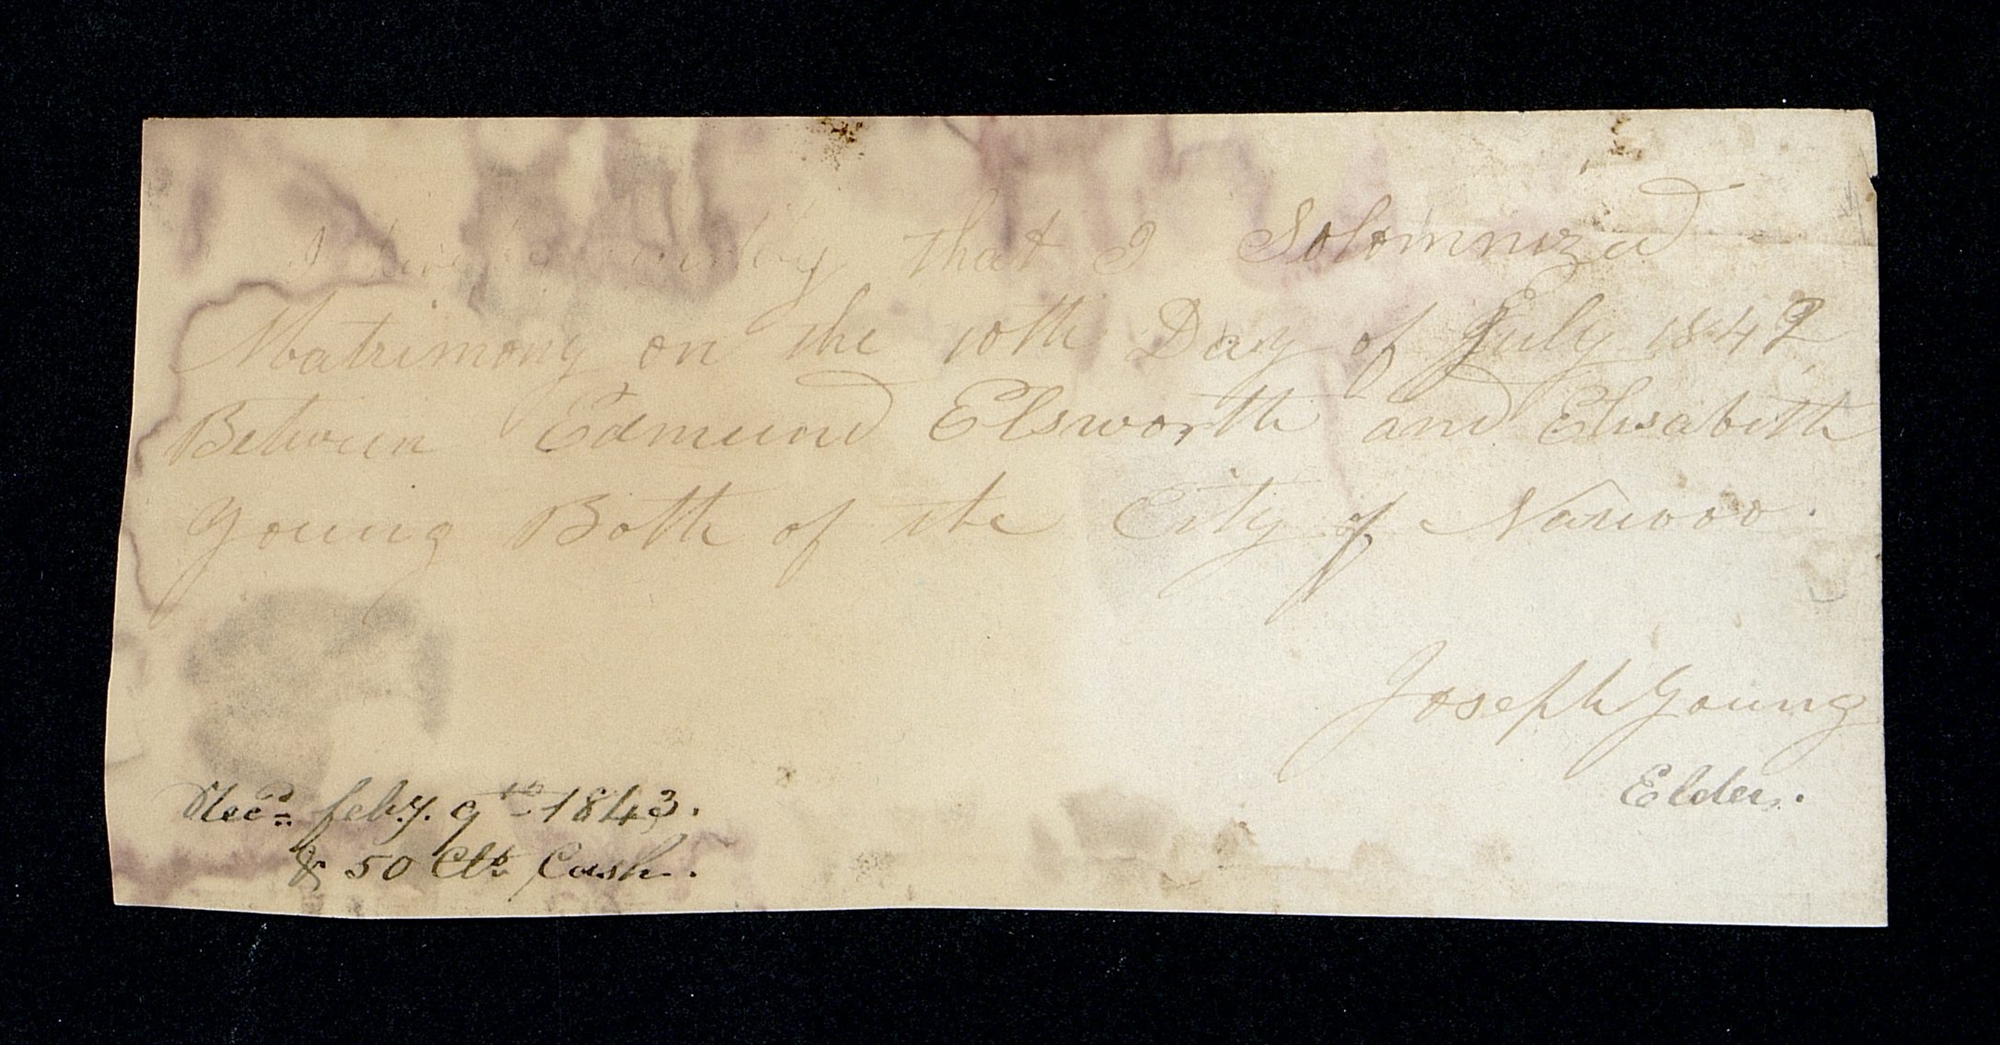 that I Solomnized
Matrimony on the 10th Day of July 1842
Between Edmund Elsworth and Elisabeth
Young Both of the City of Nauvoo.
Joseph Young
Elder.
Rec.d feby. 9th 1843.
& 50 Cts. Cash.